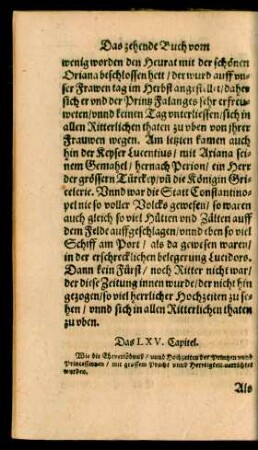 Das zehende Buch vom
wenig worden den Heurat mit der schönen
Oriana beschlossen hett / der wurd auff vn-
ser Frawen tag im Herbst angestellet / daher
sich er vnd der Printz Falanges sehr erfreu-
weten / vnnd keinen Tag vnterliessen / sich in
allen Ritterlichen thaten zu vben von jhrer
Frauwen wegen. Am letzten kamen auch
hin der Keyser Lucentius / mit Ariana seinem
Gemahel / hernach Perion / ein Herr
der grössern Türckey / vñ die Königin Gri-
celerie. Vnnd war die Statt Constantino-
pel nie so voller Volcks gewesen / so waren
auch gleich so viel Hütten vnd Zälten auff
dem Felde auffgeschlagen / vnnd eben so viel
Schiff am Port / als da gewesen waren /
in der erschrecklichen belegerung Lucidors.
Dann kein Fürst / noch Ritter nicht war /
der diese Zeitung innen wurde / der nicht hin
gezogen / so viel herrlicher Hochzeiten zu se-
hen / vnnd sich in allen Ritterlichen thaten
zu vben.
Das LXV. Capitel.
Wie die Eheverlöbnuß / vnnd Hochzeiten der Printzen vnnd
Princessinnen / mit grossem Pracht vnnd Herrligkeit verrichtet
wurden.
Als